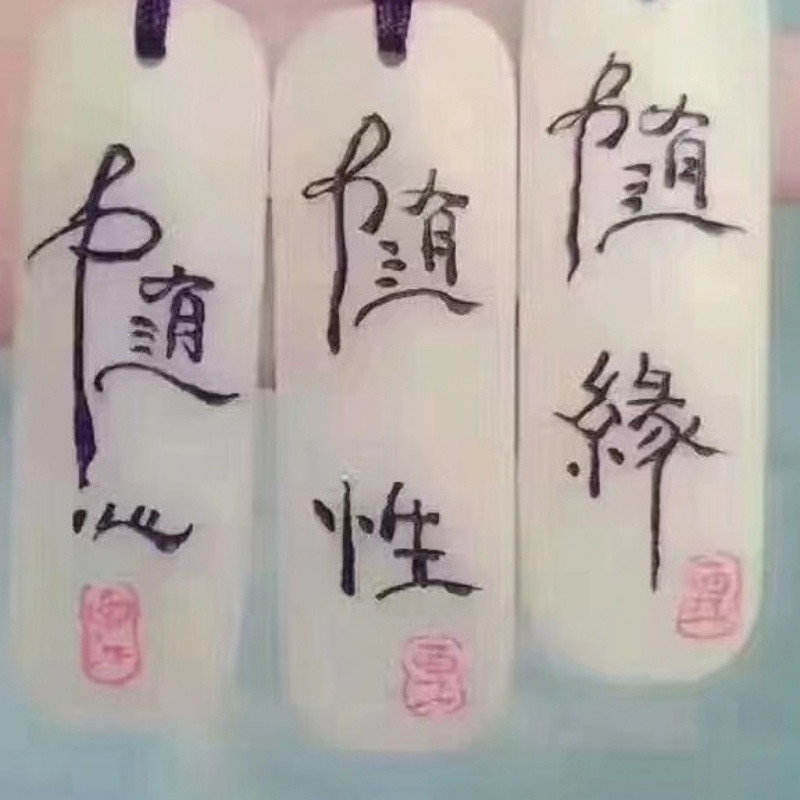 隨心
隨性
隨緣